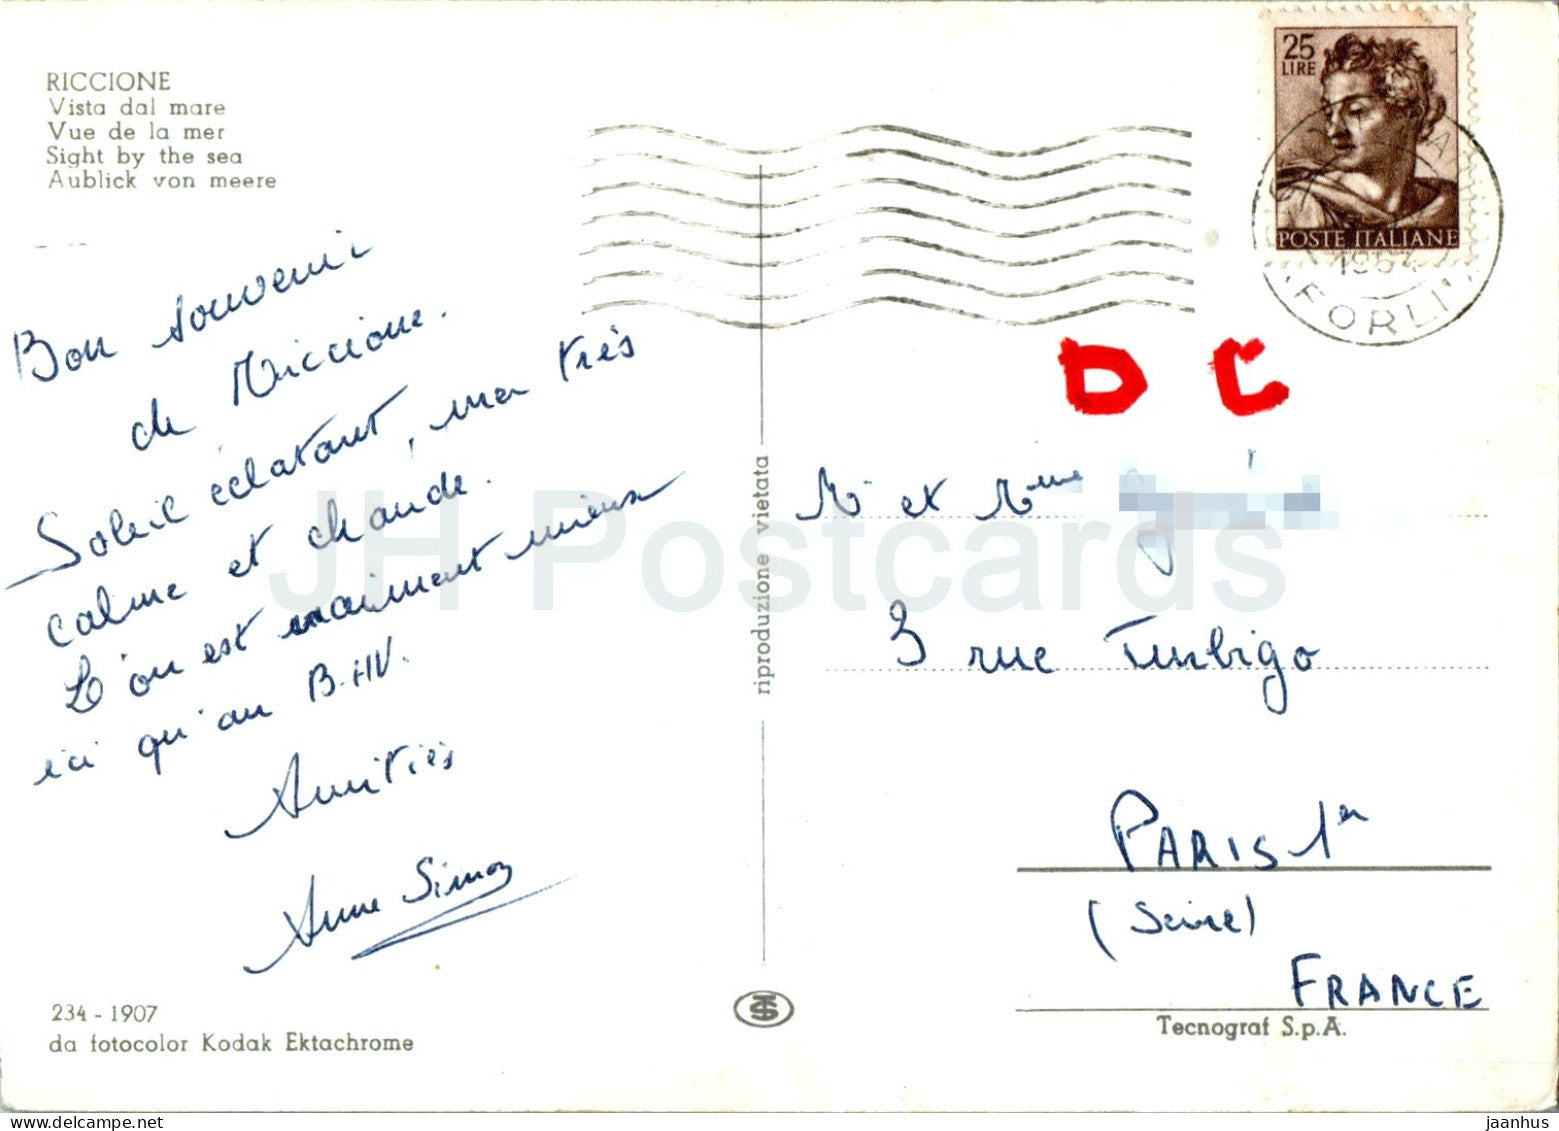 RICCIONE
Vista dal mare
Vue de la mer
Sight by the sea
Aublick von meere
Bon souvenir
de Riccione.
Soleil éclatant, mer très
calme et chaude.
L'on est vraiment mieux
ici qu'au B.HV.
Amitiés
Anne Simon
234 - 1907
da fotocolor Kodak Ektachrome
riproduzione vietata
25
LIRE
POSTE ITALIANE
1964
(FORLI')
D C
Mr et Mme
3 rue Turbigo
PARIS 1er
(Seine)
FRANCE
Tecnograf S.p.A.
JH Postcards
jaanhus